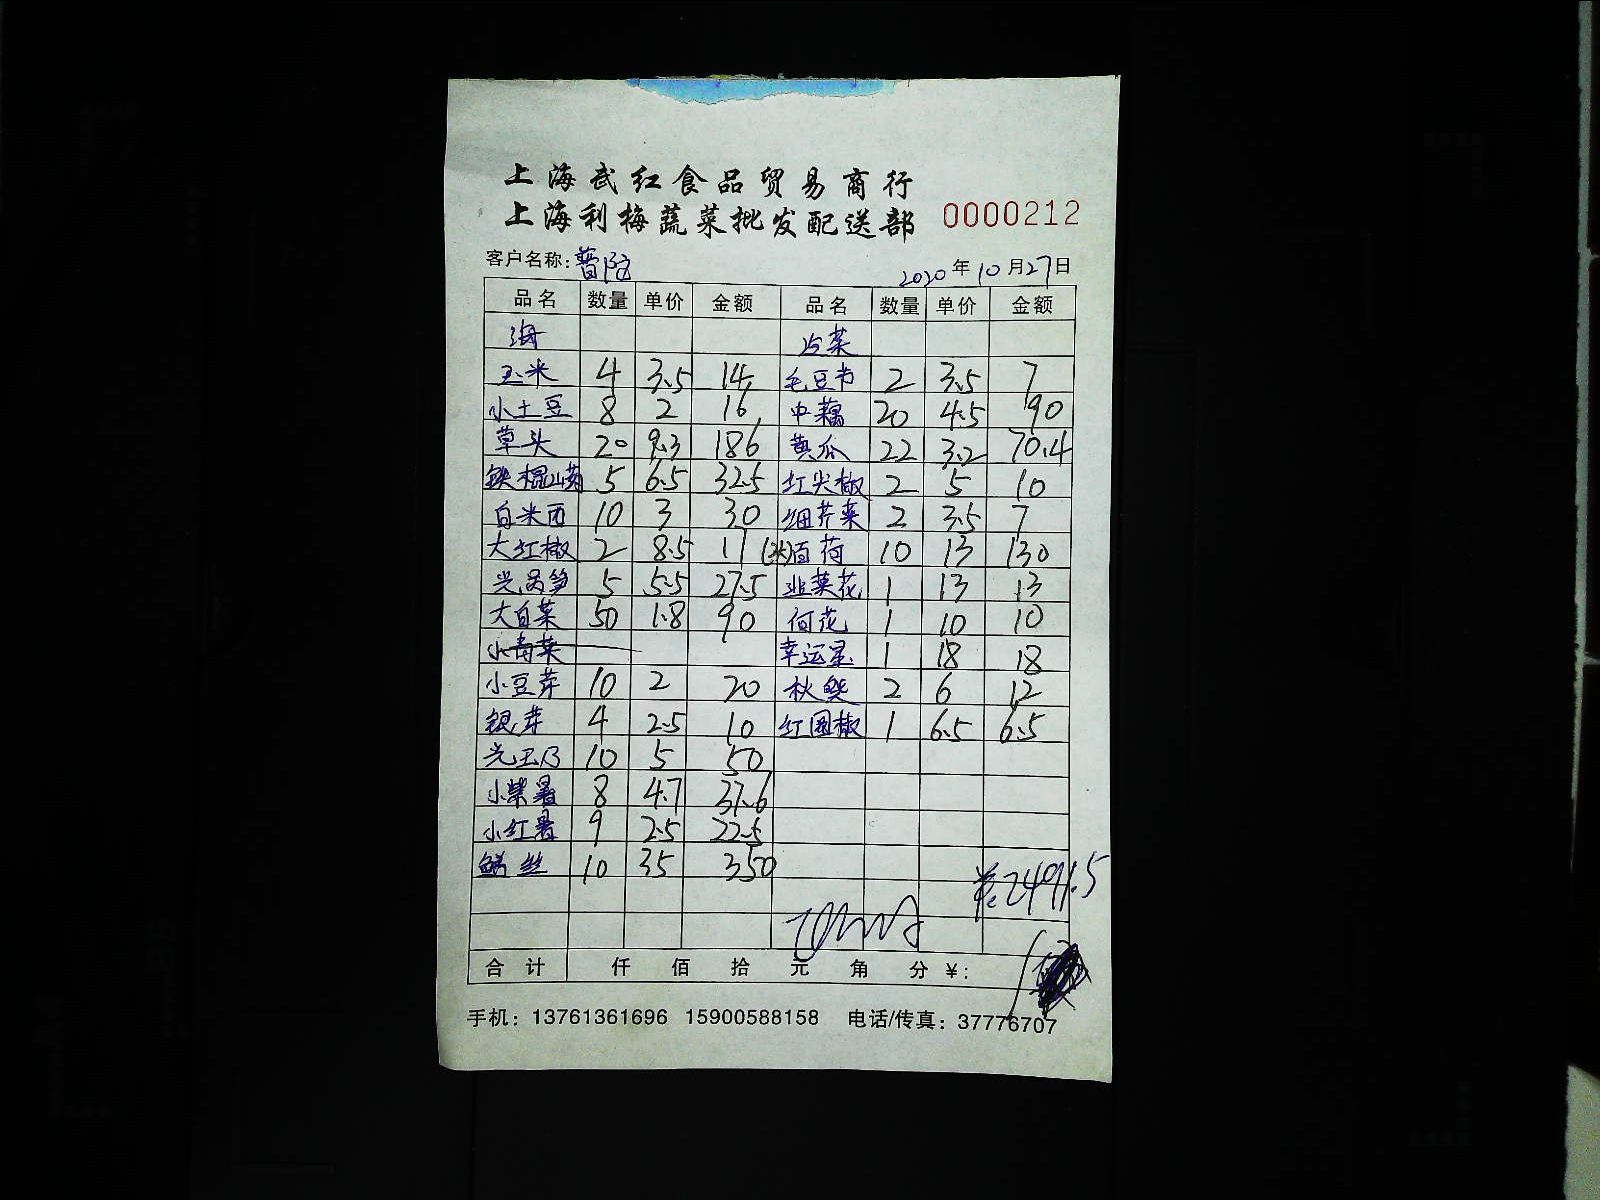 上海武红食品贸易商行
上海利梅蔬菜批发配送部 0000212
客户名称: 普陀 2020年10月27日
品名 数量 单价 金额 品名 数量 单价 金额
海 冷菜
玉米 4 3.5 14 毛豆节 2 3.5 7
小土豆 8 2 16 中藕 20 4.5 90
草头 20 9.3 186 黄瓜 22 3.2 70.4
铁棍山药 5 6.5 32.5 红尖椒 2 5 10
白米西 10 3 30 细芹菜 2 3.5 7
大红椒 2 8.5 17 百荷 10 13 130
光莴笋 5 5.5 27.5 韭菜花 1 13 13
大白菜 50 1.8 90 何花 1 10 10
小青菜 幸运星 1 18 18
小豆芽 10 2 20 秋葵 2 6 12
银芽 4 2.5 10 红圆椒 1 6.5 6.5
光玉 10 5 50
小紫暑 8 4.7 37.6
小红暑 9 2.5 22.5
鳝丝 10 35 350
2491.5
合计 仟 佰 拾 元 角 分 ¥:
手机: 13761361696 15900588158 电话/传真: 37776707